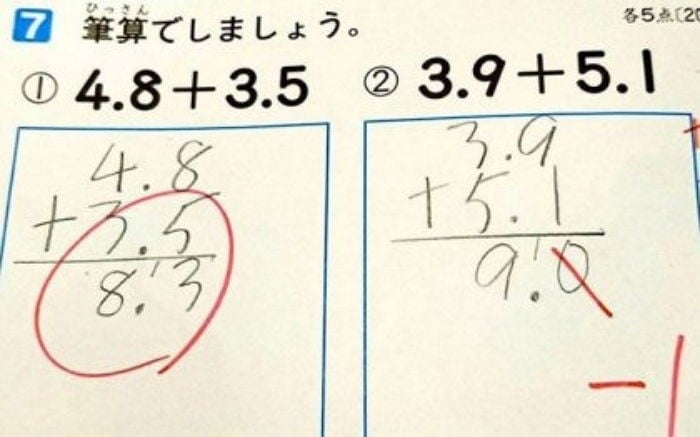 ひっさん
7 筆算でしましょう。 各5点(20
① 4.8+3.5 ② 3.9+5.1
4.8
+3.5
8.3
3.9
+5.1
9.0
-1